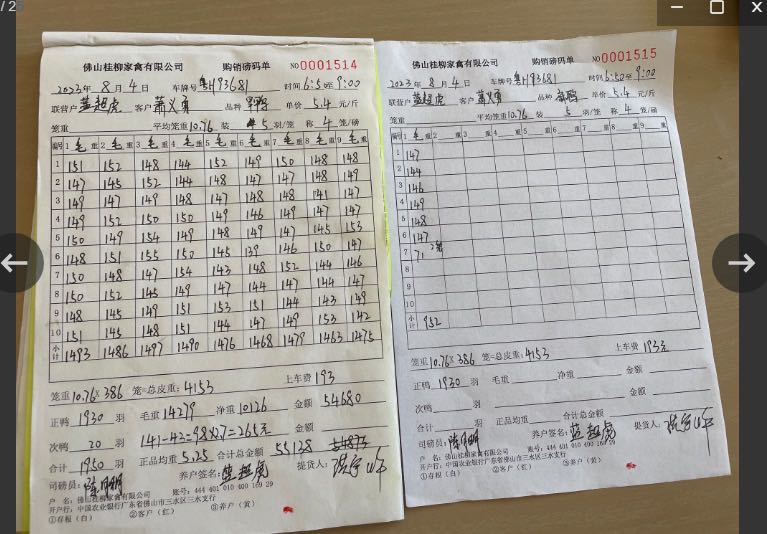 / 25
佛山桂柳家禽有限公司 购销磅码单 NO0001514
2023年 8月 4日 车牌号 粤H93681 时间 6:50至9:00
联营户 蓝超虎 客户 萧义勇 品种 单价 5.4 元/斤
笼重 平均笼重10.76 装 5 羽/笼 称 4 笼/磅
编号 1毛重 2毛重 3毛重 4毛重 5毛重 6毛重 7毛重 8毛重 9毛重
1 151 152 148 144 152 149 150 148 148
2 147 145 152 144 148 147 147 148 149
3 149 147 149 148 147 148 148 141 147
4 149 152 150 150 149 146 149 147 147
5 150 149 154 149 148 149 147 145 153
6 148 151 155 150 145 139 146 150 147
7 150 148 147 154 143 148 152 144 146
8 150 152 145 149 147 144 147 144 147
9 148 145 149 151 153 151 144 143 149
10 151 145 148 151 144 147 149 153 142
小计 1493 1486 1497 1490 1476 1468 1479 1463 1475
笼重10.76×386 笼=总皮重:4153 上车费 193
正鸭 1930 羽 毛重 14279 净重 10126 金额 54680
次鸭 20 羽 141-42=98×2.7=265元 金额:
合计 1950 羽 正品均重 5.25 合计总金额 55138
司磅员: 养户签名:蓝超虎 提货人:
户 名:佛山桂柳家禽有限公司 账号:444 401 010 400 169 29
开户行:中国农业银行广东省佛山市三水区三水支行
①存根(白) ②客户(红) ③养户(黄)
佛山桂柳家禽有限公司 购销磅码单 NO0001515
2023年 8月 4日 车牌号 粤H93681 时间 6:50至9:00
联营户 蓝超虎 客户 萧义勇 品种 单价 5.4 元/斤
笼重 平均笼重10.76 装 5 羽/笼 称 4 笼/磅
编号 1毛重 2 重 3 重 4 重 5 重 6 重 7 重 8 重 9 重
1 147
2 144
3 146
4 149
5 148
6 147
7 71 2笼
8
9
10
小计 952
笼重10.76×386 笼=总皮重:4153 上车费 193元
正鸭 1930 羽 毛重: 净重 金额
次鸭 羽 金额
合计 羽 正品均重: 合计总金额
司磅员: 养户签名:蓝超虎 提货人:
户 名:佛山桂柳家禽有限公司 账号:444 401 010 400 169 29
开户行:中国农业银行广东省佛山市三水区三水支行
①存根(白) ②客户(红) ③养户(黄)